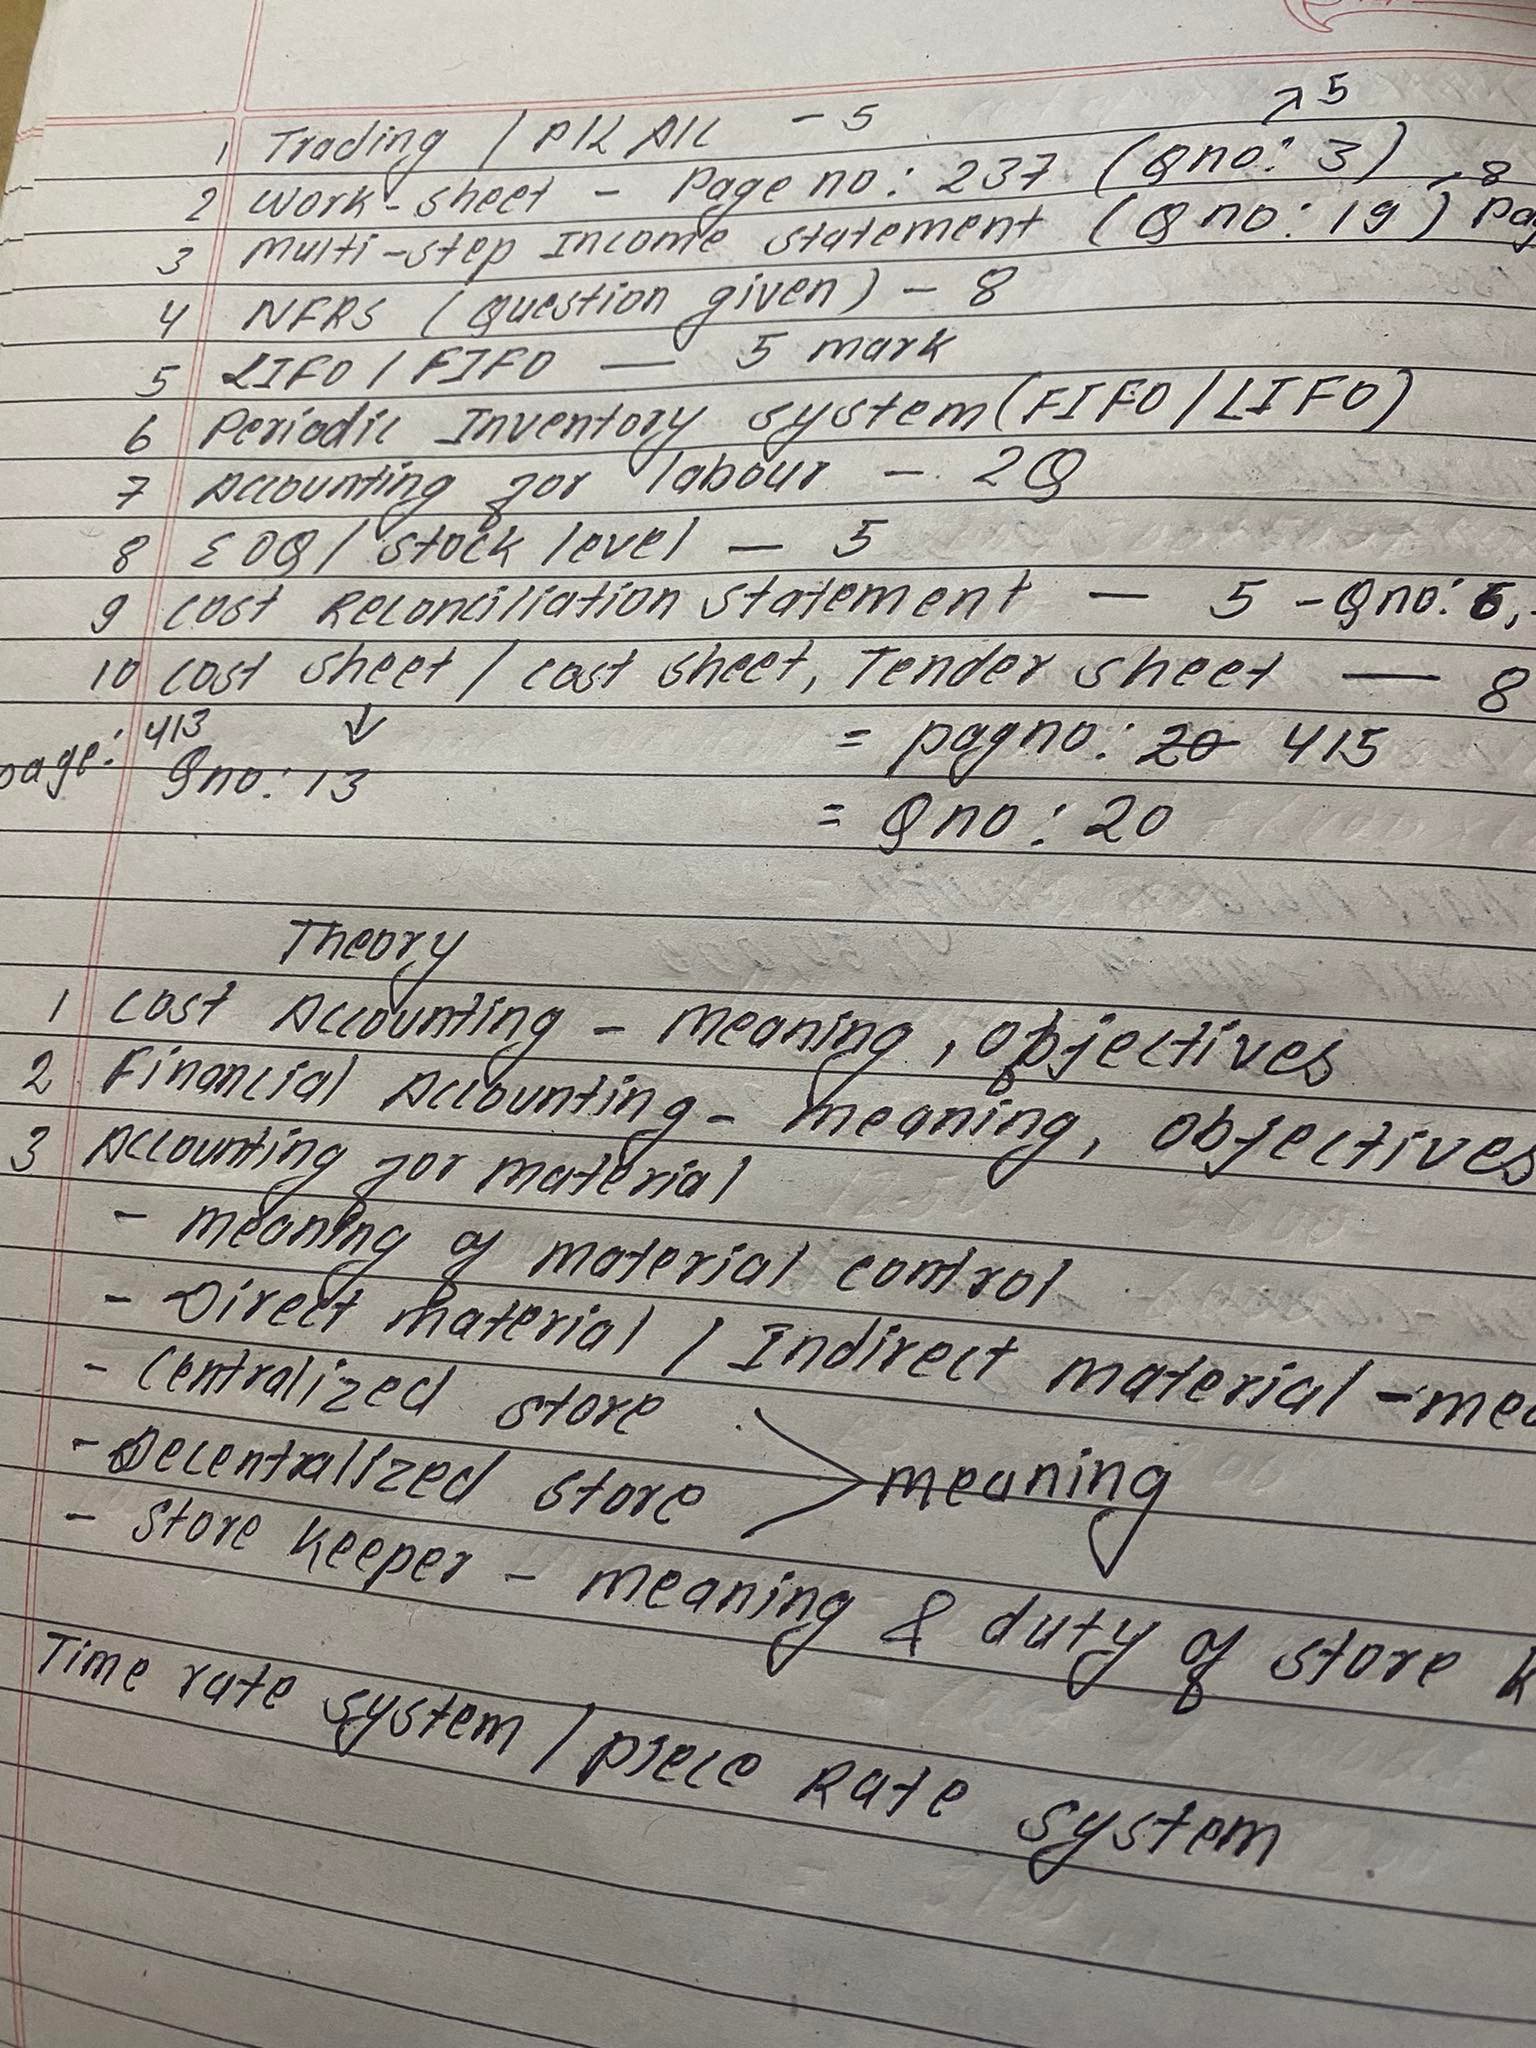 1 Trading / P/L A/C - 5
2 Work-sheet - Page no: 237 (Qno: 3) → 5
3 Multi-step Income Statement (Qno: 19) , 8
4 NFRS (Question given) - 8
5 LIFO / FIFO — 5 mark
6 Periodic Inventory system (FIFO / LIFO)
7 Accounting for labour - 2Q
8 EOQ / stock level — 5
9 Cost Reconciliation statement — 5 - Qno: 6,
10 cost sheet / cost sheet, Tender sheet — 8
page: 413 ↓ = pagno: 20 415
Qno: 13 = Qno: 20
Theory
1 Cost Accounting - Meaning, Objectives
2 Financial Accounting - Meaning, Objectives
3 Accounting for material
- Meaning of material control
- Direct material / Indirect material -
- Centralized store
- Decentralized store > meaning
- Store keeper - meaning & duty of store
Time rate system / piece Rate system